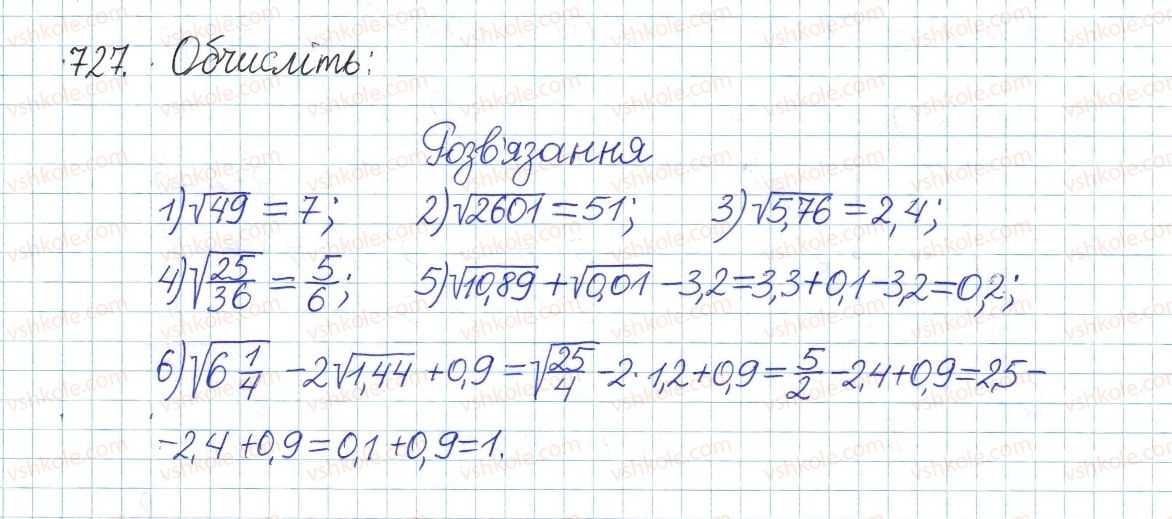 727. Обчисліть:
Розв'язання
1) √49 = 7; 2) √2601 = 51; 3) √5,76 = 2,4;
4) √(25/36) = 5/6; 5) √10,89 + √0,01 - 3,2 = 3,3 + 0,1 - 3,2 = 0,2;
6) √(6 1/4) - 2√1,44 + 0,9 = √(25/4) - 2 · 1,2 + 0,9 = 5/2 - 2,4 + 0,9 = 2,5 -
- 2,4 + 0,9 = 0,1 + 0,9 = 1.